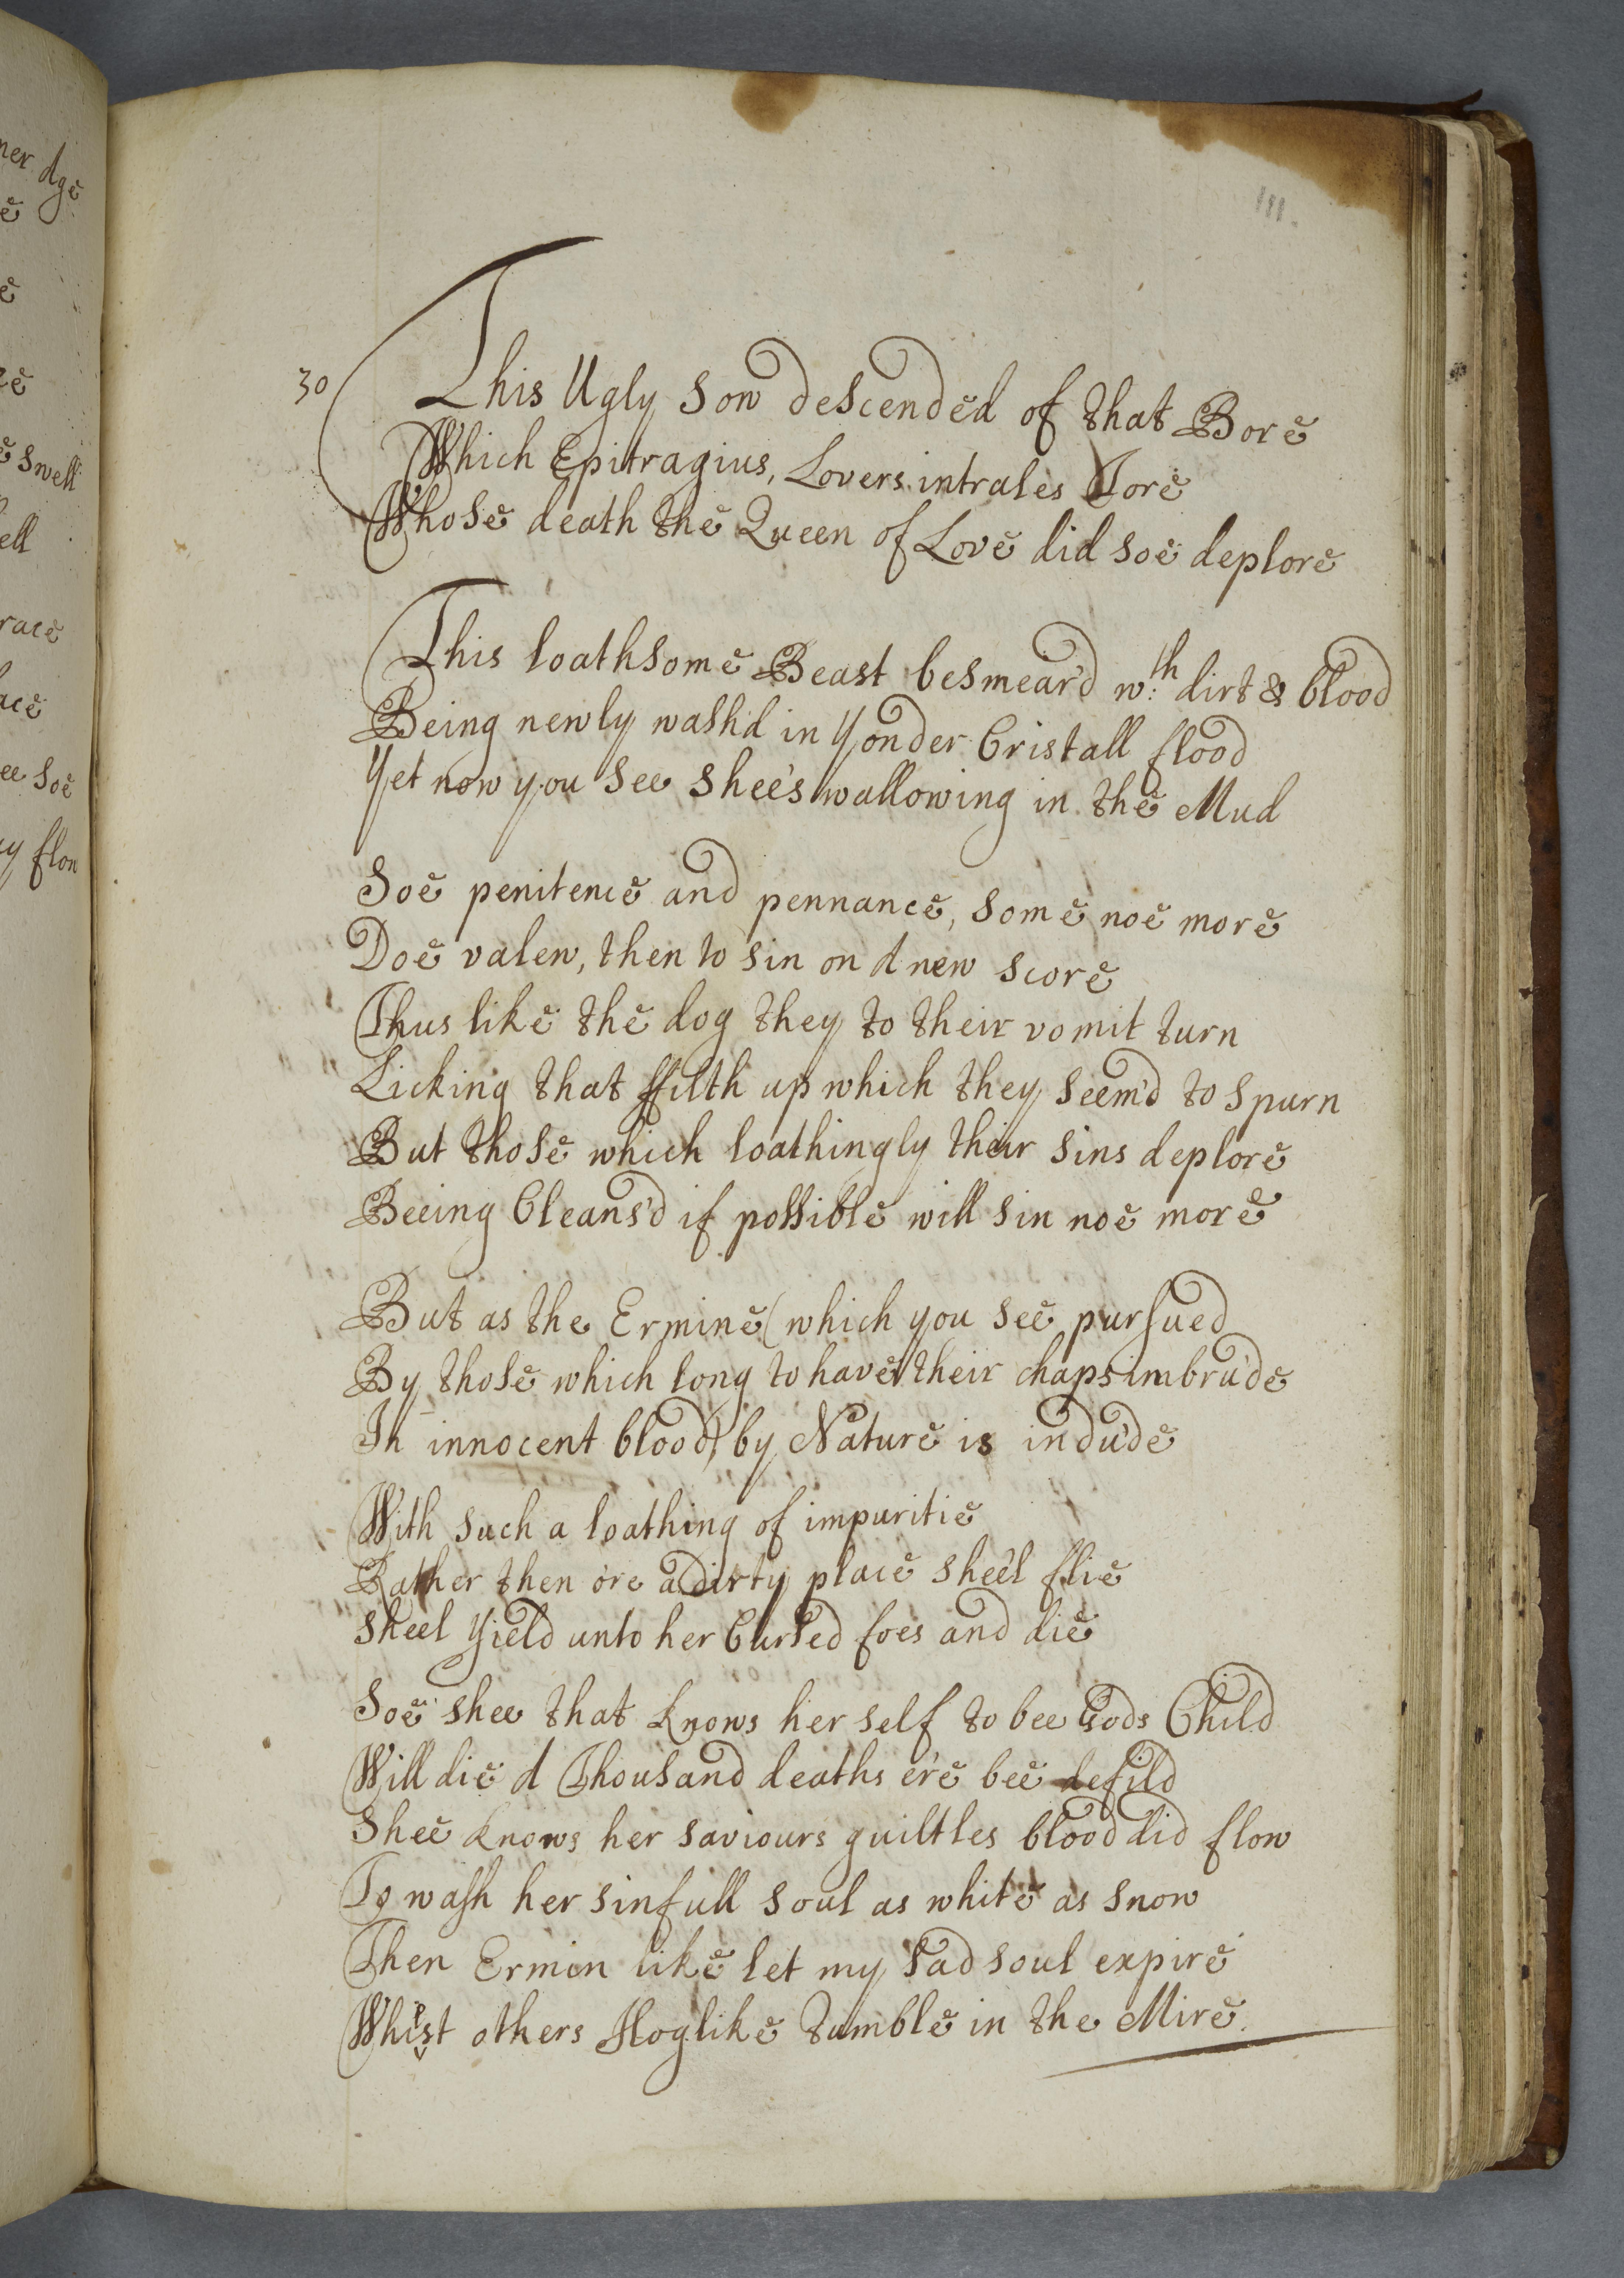 ner Age
e
e
re
e swell
ell
race
ace
ee soe
y flow
111.
30
This Ugly Sow descended of that Bore
Which Epitragius, Lovers intrales Tore
Whose death the Queen of Love did soe deplore
This loathsome Beast besmear'd wth dirt & blood
Being newly wash'd in Yonder Cristall flood
Yet now you see shee's wallowing in the Mud
Soe penitence and pennance, some noe more
Doe valew, then to sin on A new score
Thus like the dog they to their vomit turn
Licking that ffilth up which they seem'd to spurn
But those which loathingly their sins deplore
Beeing Cleans'd if possible will sin noe more
But as the Ermine (which you see pursued
By those which long to have their chaps imbru'de
In innocent blood) by Nature is indu'de
With such a loathing of impuritie
Rather then o're a dirty place shee'l flie
Sheel Yield unto her Cursed foes and die
Soe shee that knows her self to bee Gods Child
Will die A Thousand deaths e're bee defild
Shee knows her saviours guiltles blood did flow
To wash her sinfull soul as white as snow
Then Ermin like let my sad soul expire
Whilst others Hoglike tumble in the Mire.